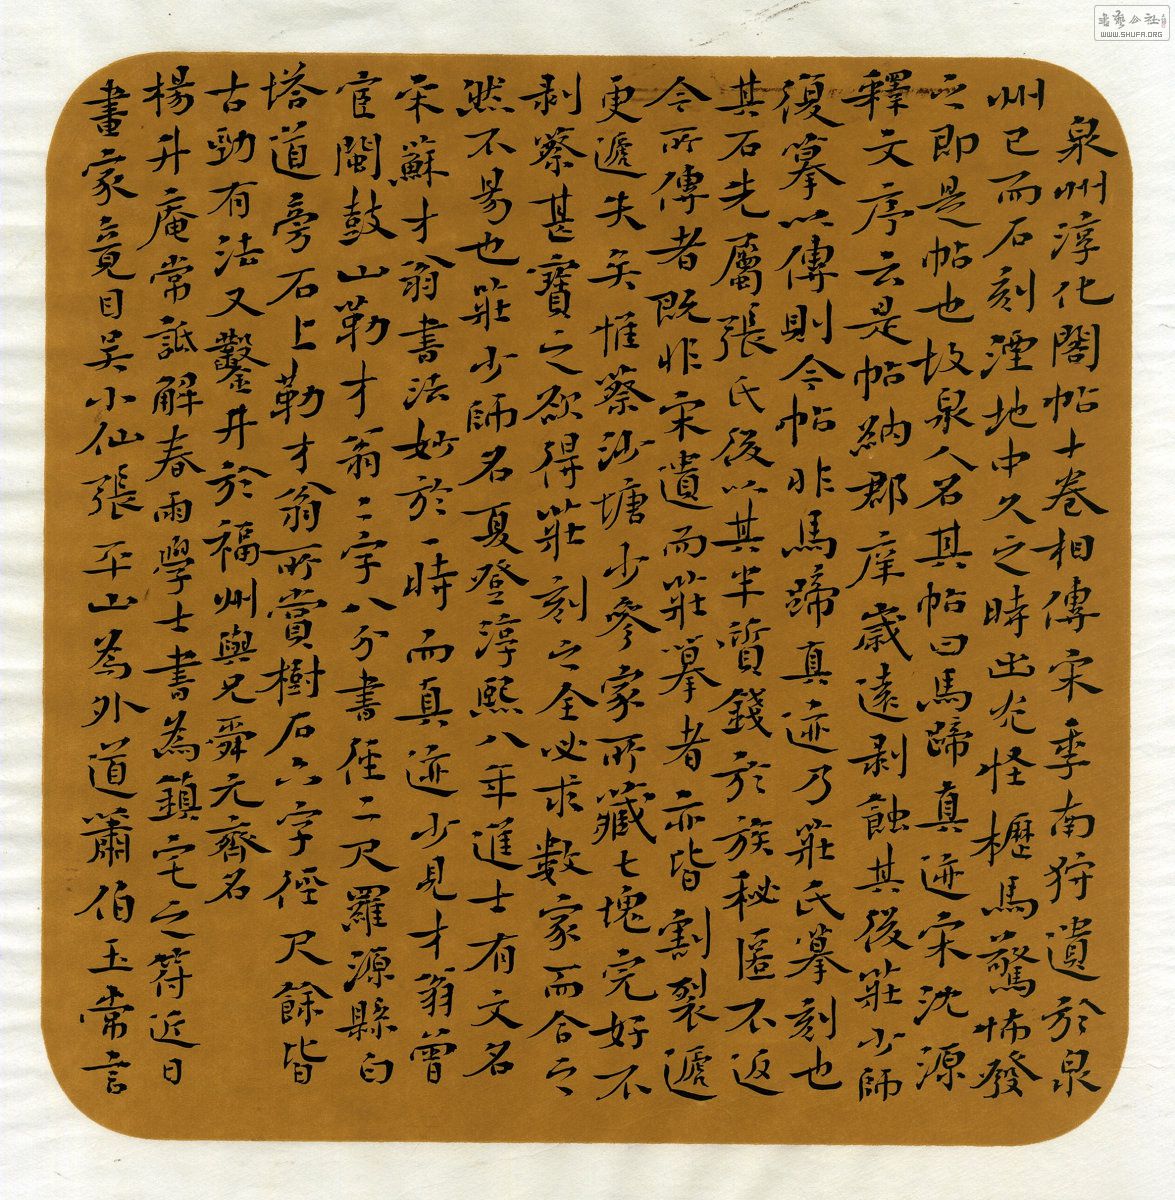 泉州淳化閣帖十卷相傳宋季南狩遺於泉
州已而石刻湮地中久之時出光怪櫪馬驚怖發
之即是帖也故泉人名其帖曰馬蹄真迹宋沈源
釋文序云是帖納郡庠歲遠剥蝕其後莊少師
復摹以傳則今帖非馬蹄真迹乃莊氏摹刻也
其石先屬張氏後以其半質錢於族秘匿不返
今所傳者既非宋遺而莊摹者亦皆割裂遞
更遞失矣惟蔡沙塘少參家所藏七塊完好不
剥蔡甚寶之欲得莊刻之全必求數家而合之
然不易也莊少師名夏登淳熙八年進士有文名
宋蘇才翁書法妙於一時而真迹少見才翁曾
宦閩鼓山勒才翁二字八分書徑二尺羅源縣白
塔道旁石上勒才翁所賞樹石六字徑尺餘皆
古勁有法又鑿井於福州與兄舜元齊名
楊升庵常詆解春雨學士書為鎮宅之符近日
畫家竟目吴小仙張平山為外道簫伯玉常言
書藝公社
WWW.SHUFA.ORG